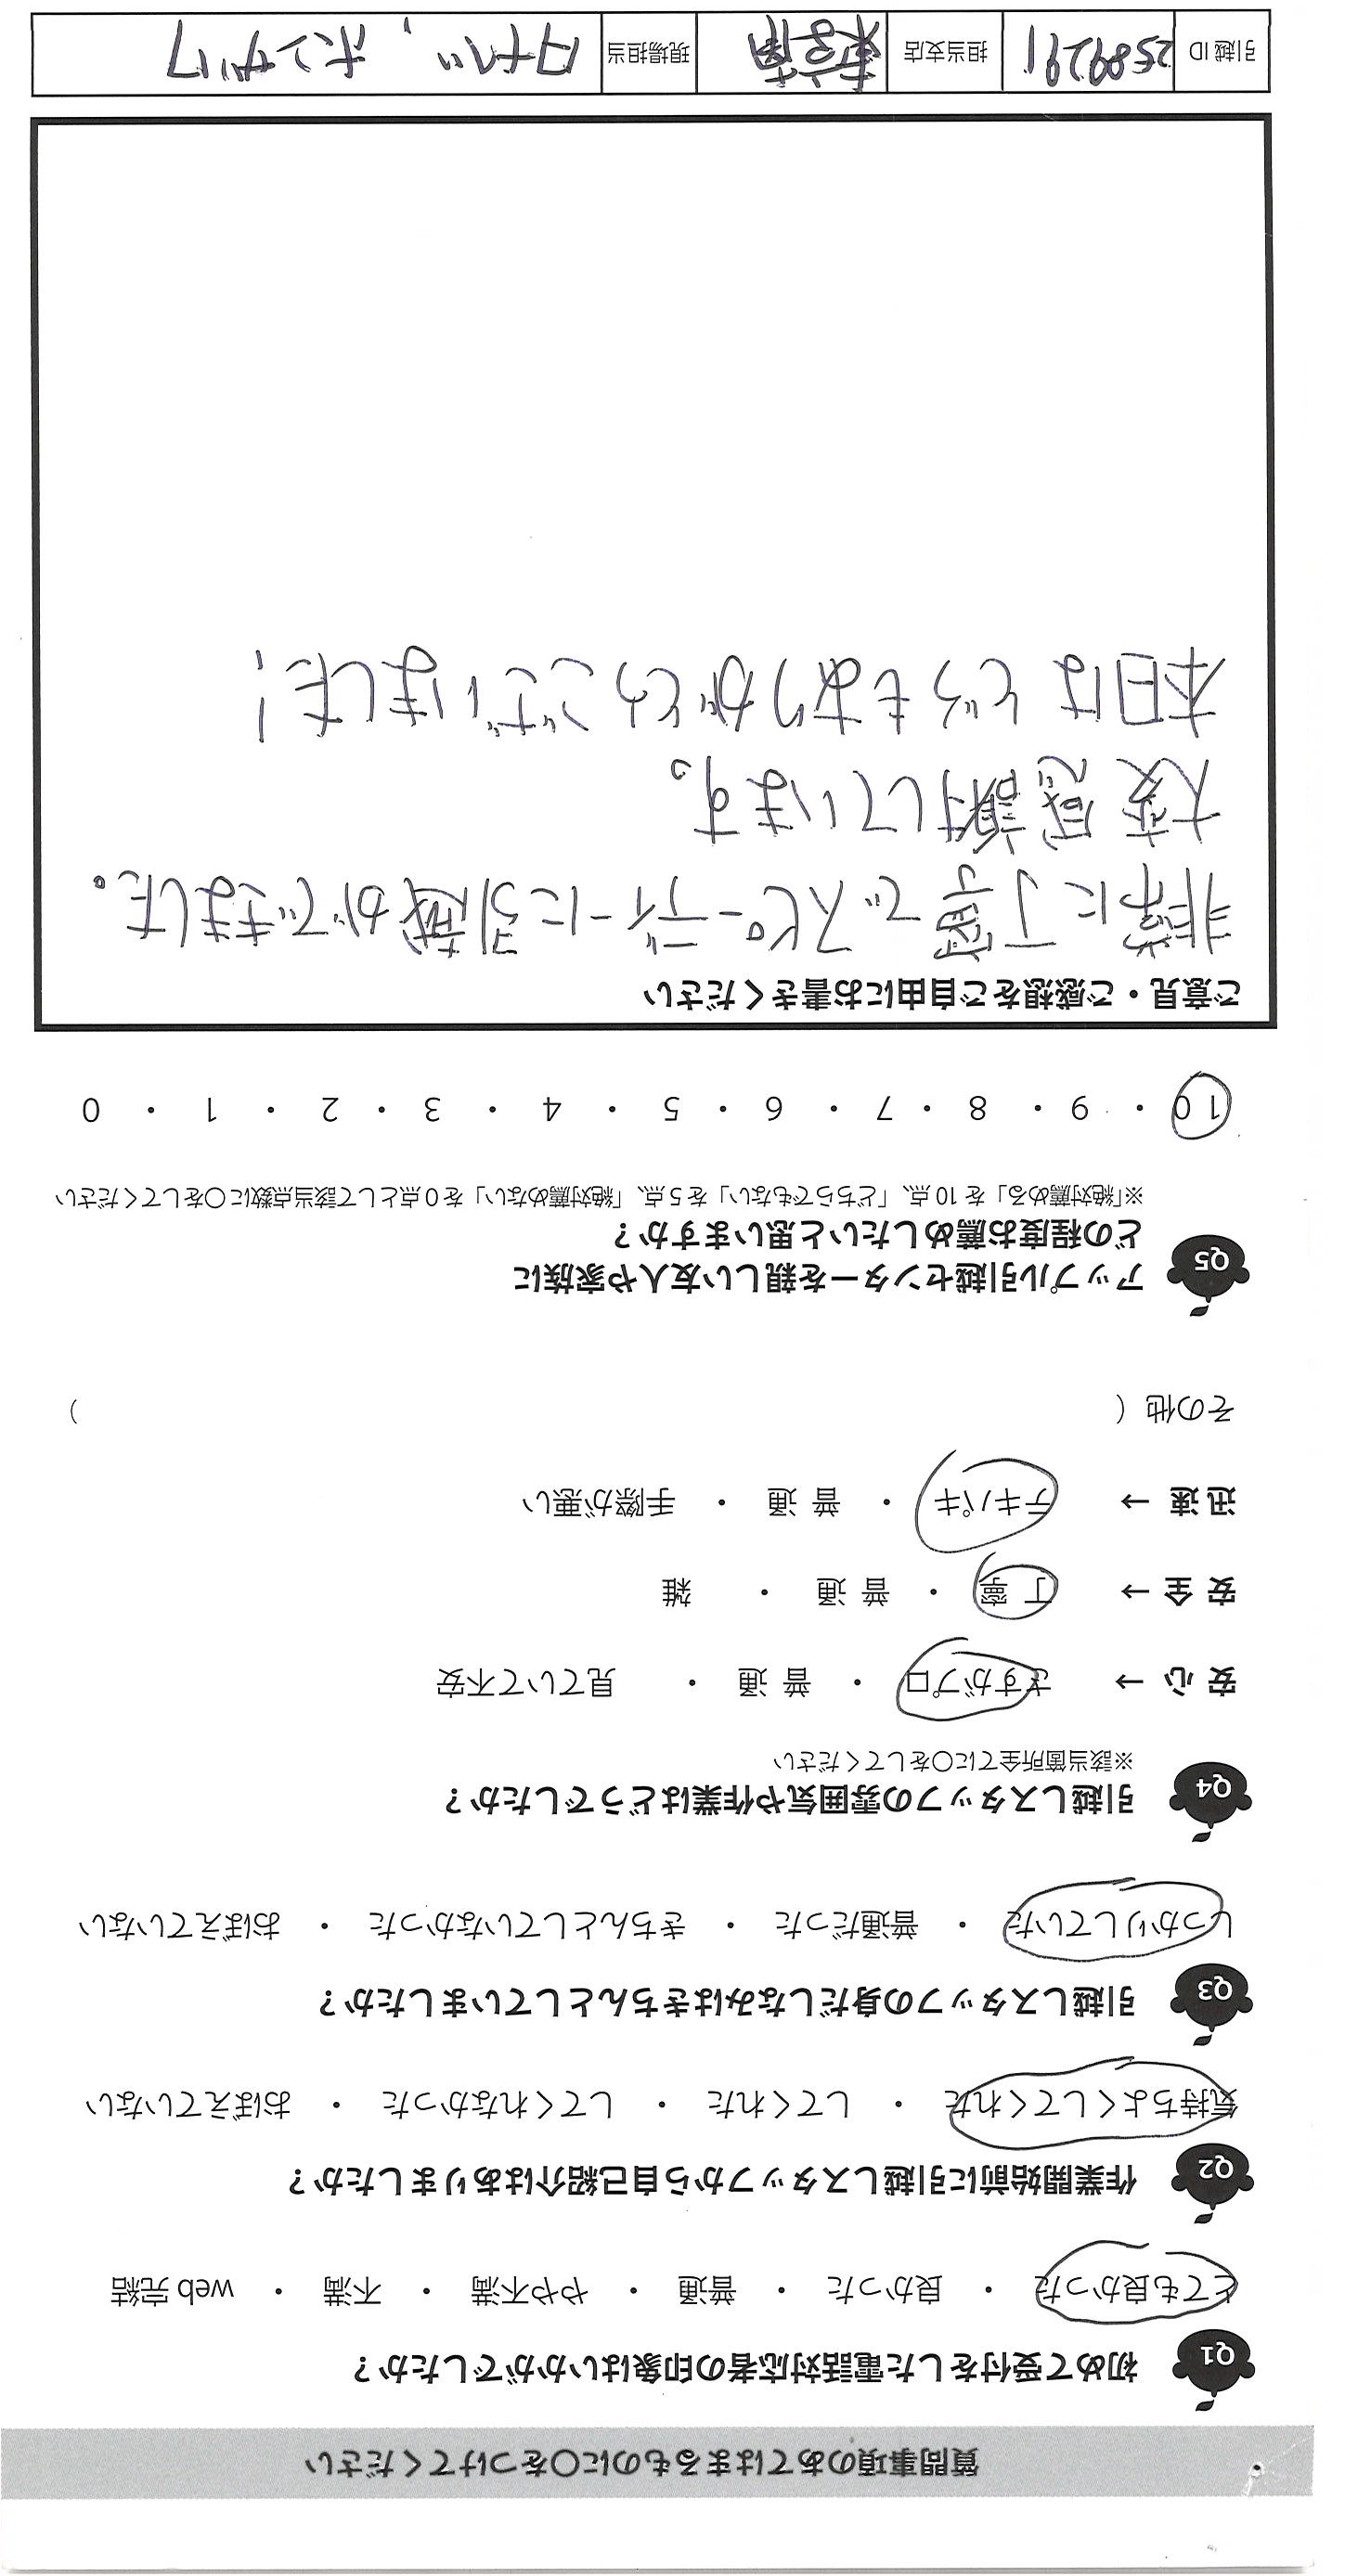 質問事項のあてはまるものに〇をつけてください
Q1 初めて受付をした電話対応者の印象はいかがでしたか？
とても良かった ・ 良かった ・ 普通 ・ やや不満 ・ 不満 ・ web 完結
Q2 作業開始前に引越しスタッフから自己紹介はありましたか？
気持ちよくしてくれた ・ してくれた ・ してくれなかった ・ おぼえていない
Q3 引越しスタッフの身だしなみはきちんとしていましたか？
しっかりしていた ・ 普通だった ・ きちんとしていなかった ・ おぼえていない
Q4 引越しスタッフの雰囲気や作業はどうでしたか？
※該当箇所全てに〇をしてください
安 心 → さすがプロ ・ 普 通 ・ 見ていて不安
安 全 → 丁 寧 ・ 普 通 ・ 雑
迅 速 → テキパキ ・ 普 通 ・ 手際が悪い
その他（ ）
Q5 アップル引越センターを親しい友人や家族に
どの程度お薦めしたいと思いますか？
※「絶対薦める」を 10 点、「どちらでもない」を 5 点、「絶対薦めない」を 0 点として該当点数に〇をしてください
10 ・ 9 ・ 8 ・ 7 ・ 6 ・ 5 ・ 4 ・ 3 ・ 2 ・ 1 ・ 0
ご意見・ご感想をご自由にお書きください
非常に丁寧でスピーディーに引越ができました。
大変感謝しています。
本日はどうもありがとうございました！
引越 ID 2589291 担当支店 現場担当